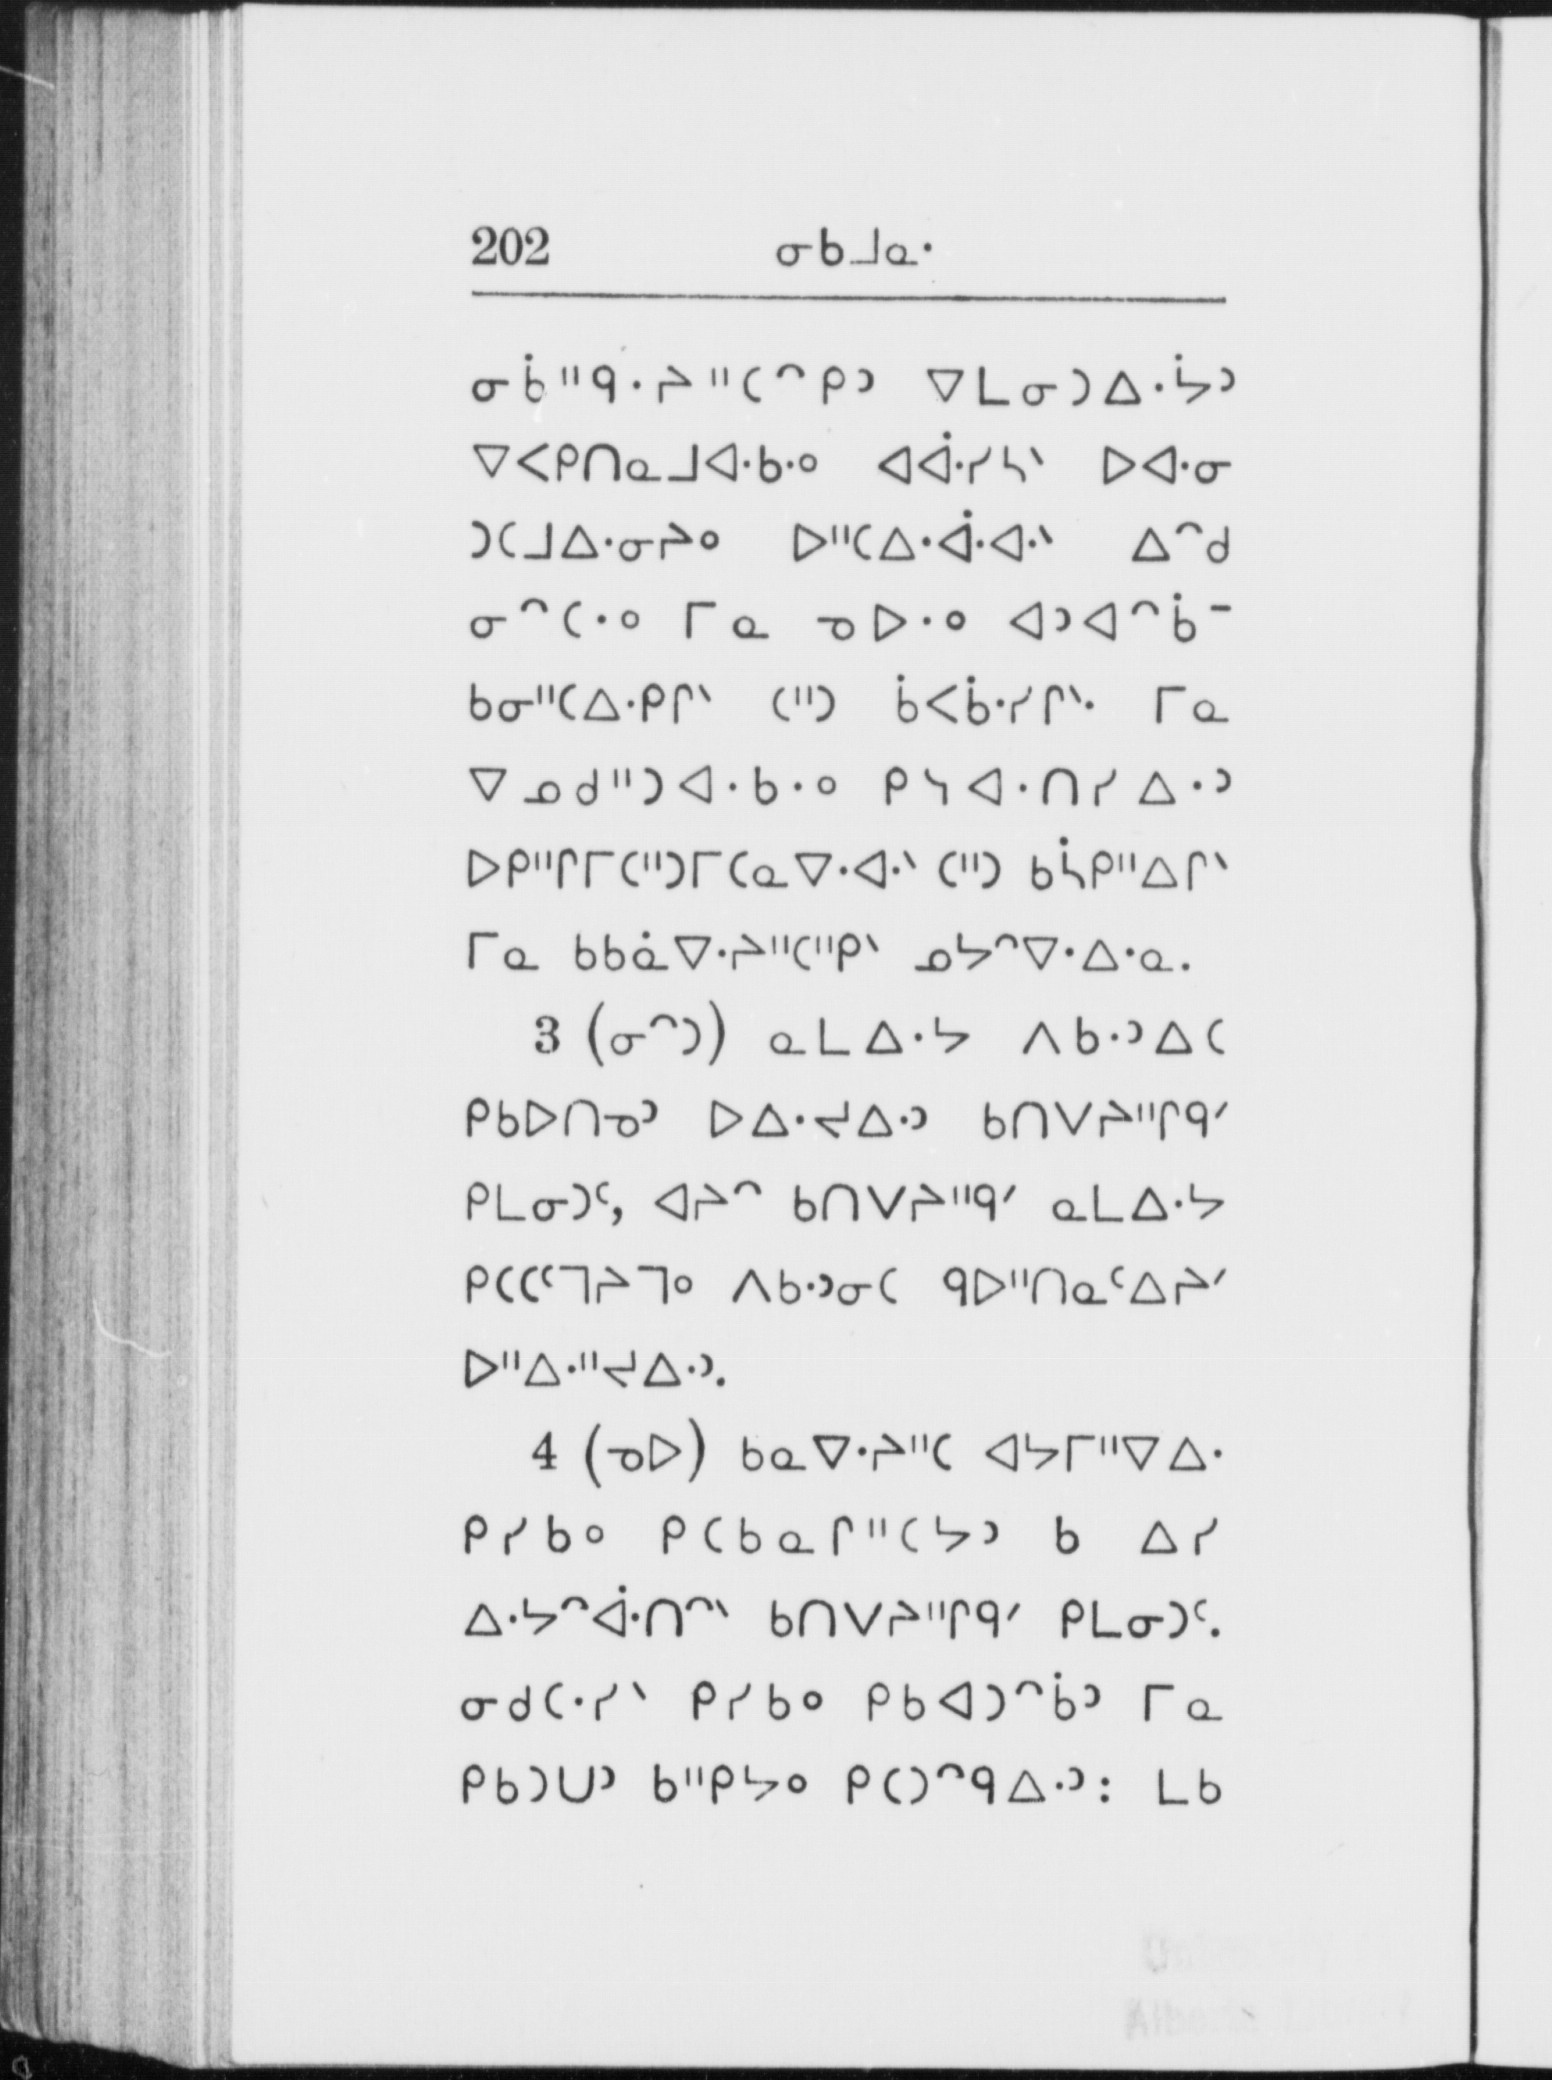 202 ᓂᑲᒧᓇᐧ
ᓂᑳᐦᑫᐧᔨᐦᑕᐢᑭᐣ ᐁᒪᓂᑐᐃᐧᔮᐣ
ᐁᐸᑭᑎᓇᒧᐊᐧᑲᐧᐤ ᐊᐋᐧᓯᓴᐠ ᐅᐊᐧᓂ
ᑐᑕᒧᐃᐧᓂᔨᐤ ᐅᐦᑕᐃᐧᐋᐧᐊᐧᐠ ᐃᐢᑯ
ᓂᐢᑕᐧᐤ ᒥᓇ ᓀᐅᐧᐤ ᐊᐣᐊᐢᑳ-
ᑲᓂᐦᑕᐃᐧᑭᒋᐠ ᑕᐦᑐ ᑳᐸᑳᐧᓯᒋᐠᐧ ᒥᓇ
ᐁᓄᑯᐦᑐᐊᐧᑲᐧᐤ ᑭᓭᐊᐧᑎᓯᐃᐧᐣ
ᐅᑭᐦᒋᒥᑕᐦᑐᒥᑕᓇᐁᐧᐊᐧᐠ ᑕᐦᑐ ᑲᓵᑭᐦᐃᒋᐠ
ᒥᓇ ᑲᑲᓈᐁᐧᔨᐦᑕᐦᑭᐠ ᓄᔭᐢᐁᐧᐃᐧᓇ.
3 (ᓂᐢᑐ) ᓇᒪᐃᐧᔭ ᐱᑲᐧᐣᐃᑕ
ᑭᑲᐅᑎᓀᐣ ᐅᐃᐧᔪᐃᐧᐣ ᑲᑎᐯᔨᐦᒋᑫᐟ
ᑭᒪᓂᑐᒼ, ᐊᔨᐢ ᑲᑎᐯᔨᐦᑫᐟ ᓇᒪᐃᐧᔭ
ᑭᑕᑕᒼᒣᔨᒣᐤ ᐱᑲᐧᐣᓂᑕ ᑫᐅᐦᑎᓇᒼᐃᔨᐟ
ᐅᐦᐃᐧᐦᔪᐃᐧᐣ.
4 (ᓀᐅ) ᑲᓇᐁᐧᔨᐦᑕ ᐊᔭᒥᐦᐁᐃᐧ
ᑭᓯᑲᐤ ᑭᑕᑲᓇᒋᐦᑕᔭᐣ ᑲ ᐃᓯ
ᐃᐧᔭᐢᐋᐧᑎᐢᐠ ᑲᑎᐯᔨᐦᒋᑫᐟ ᑭᒪᓂᑐᒼ.
ᓂᑯᑕᐧᓯᐠ ᑭᓯᑲᐤ ᑭᑲᐊᑐᐢᑳᐣ ᒥᓇ
ᑭᑲᑐᑌᐣ ᑲᐦᑭᔭᐤ ᑭᑕᑐᐢᑫᐃᐧᐣ: ᒪᑲ